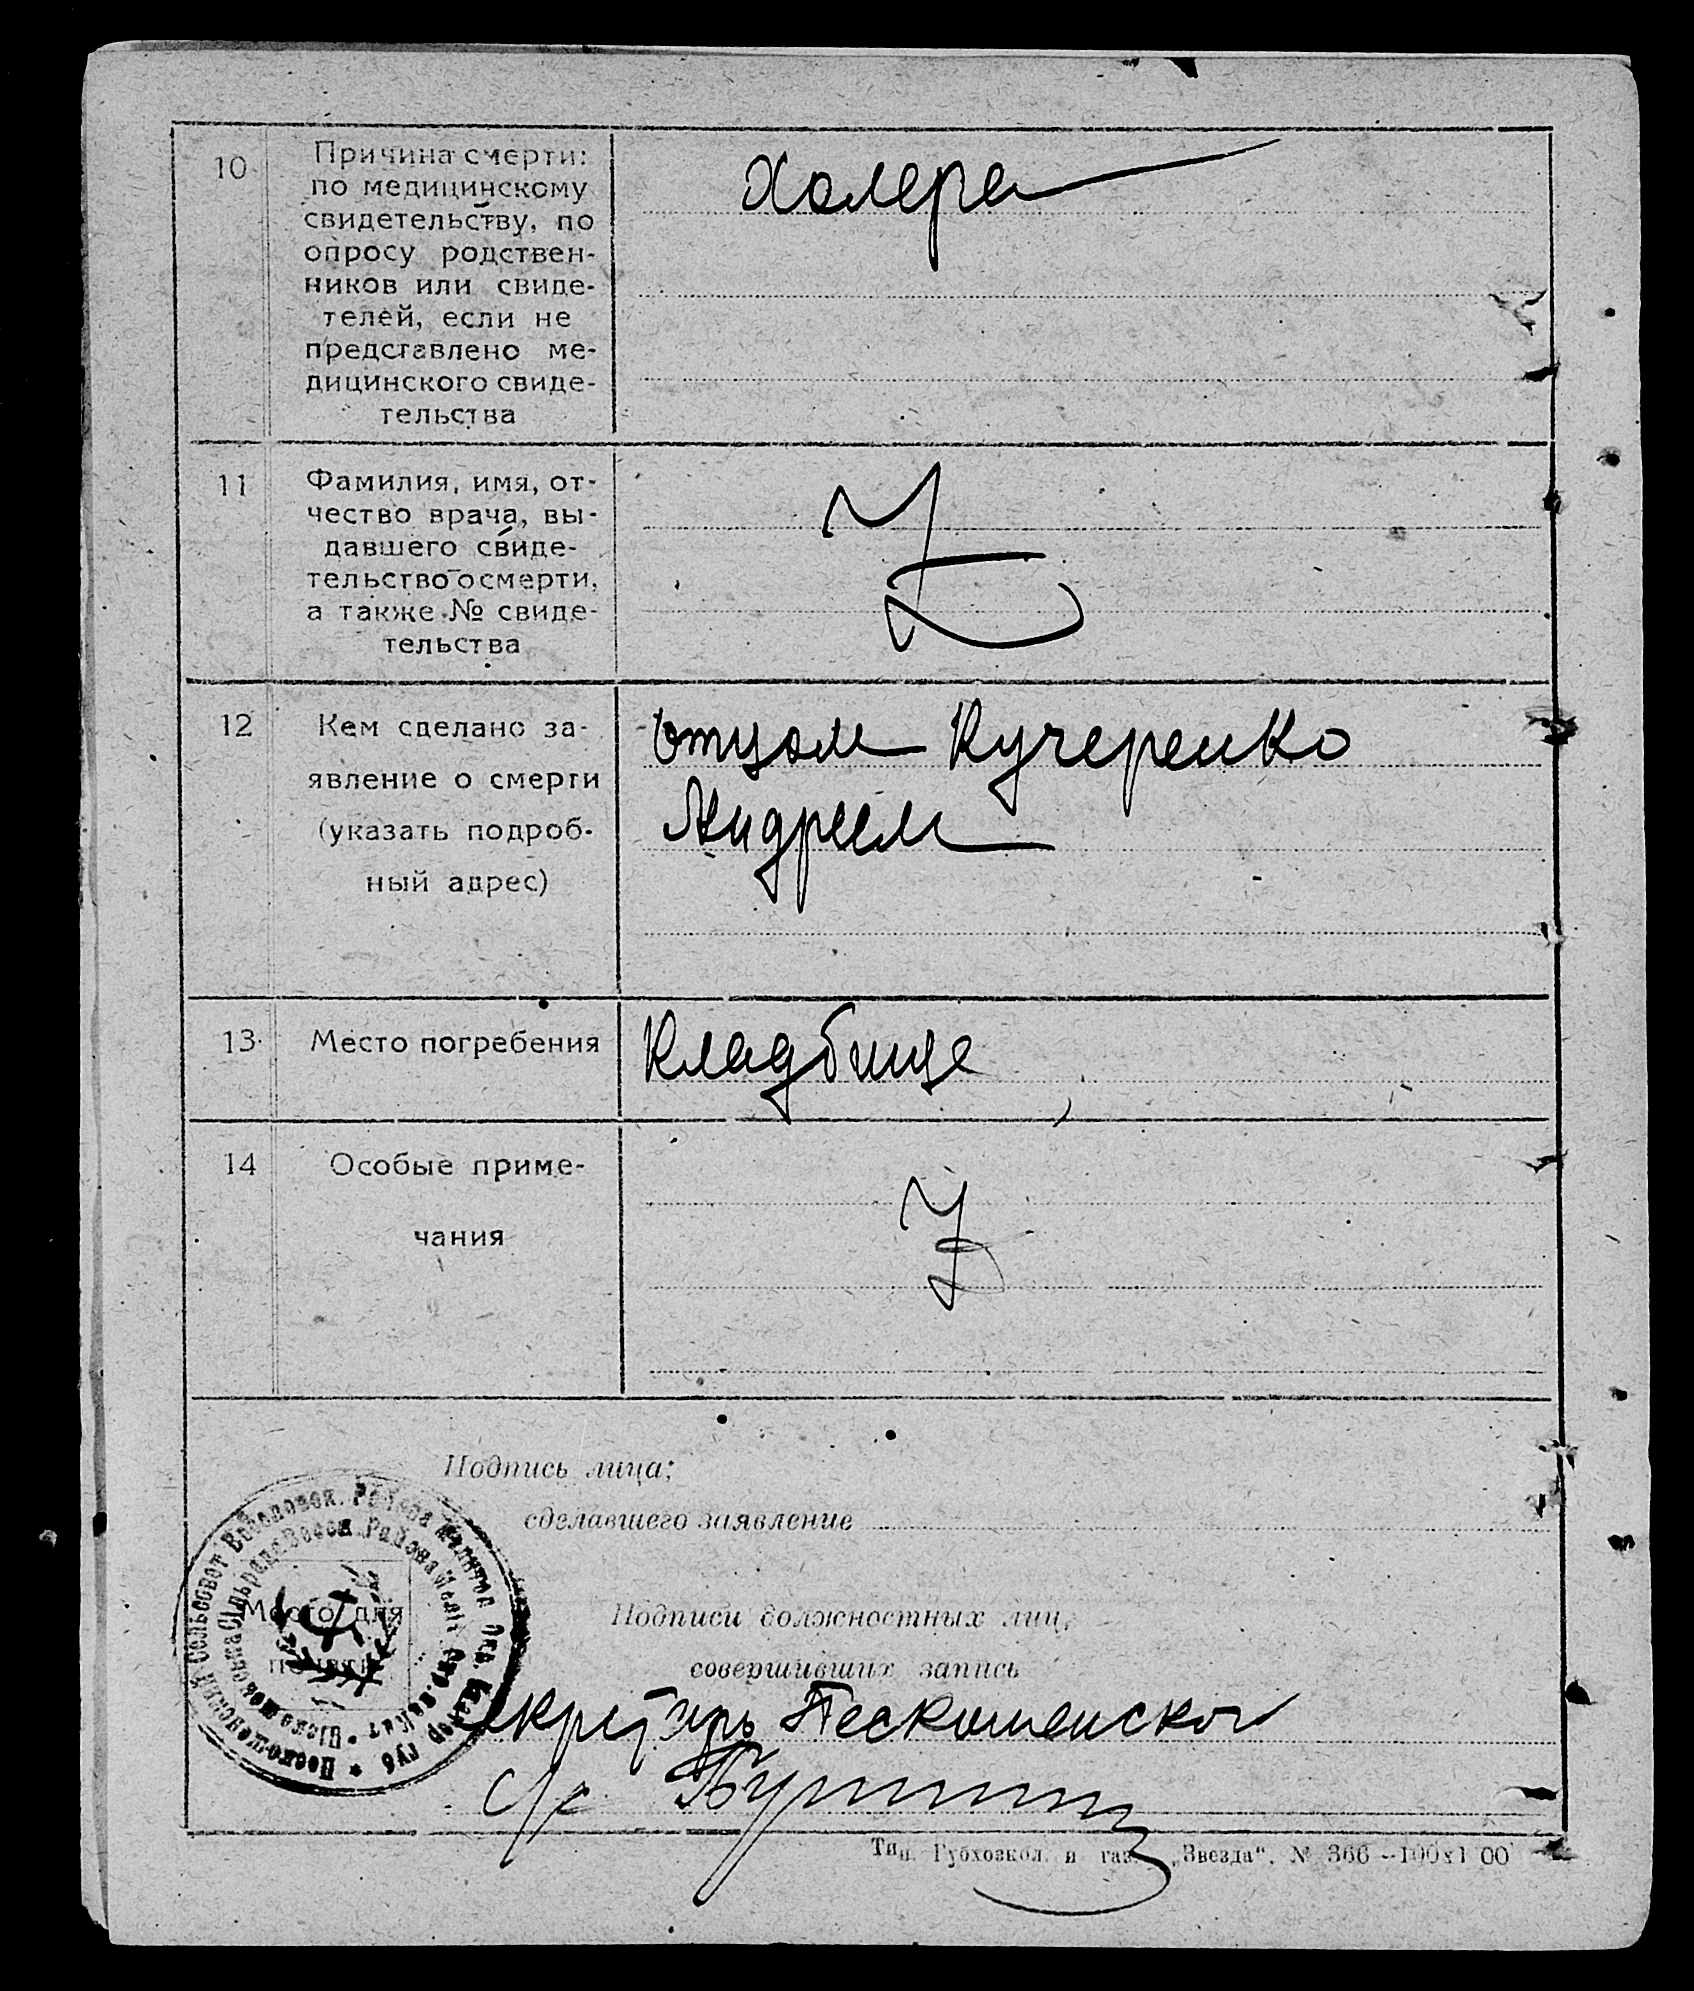 10
Причина смерти:
по медицинскому
свидетельству, по
опросу родствен-
ников или свиде-
телей, если не
представлено ме-
дицинского свиде-
тельства
Холера
11
Фамилия, имя, от-
чество врача, вы-
давшего свиде-
тельство о смерти,
а также № свиде-
тельства
Z
12
Кем сделано за-
явление о смерти
(указать подроб-
ный адрес)
Отцом Кучеренко
Андреем
13
Место погребения
Кладбище
14
Особые приме-
чания
Z
Подпись лица;
сделавшего заявление
Место для
печати
Подписи должностных лиц,
совершивших запись
Секретарь Пескошенског
с/с
Тип. Губхозкол. и газ. „Звезда". № 366 –100х1 00